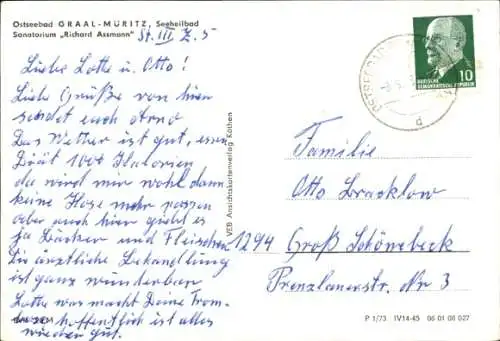 Ostseebad GRAAL-MÜRITZ, Seeheilbad
Sanatorium „Richard Assmann" St. III Z. 5
Liebe Lotte u. Otto!
Liebe Grüße von hier
sendet euch Arno
Das Wetter ist gut, essen
Diät 1000 Kalorien
da wird mir wohl dann
keine Hose mehr passen
aber auch hier giebt es
ja Bäcker und Fleischer
Die ärztliche Behandlung
ist ganz wunderbar
Lotte was macht Deine Trom-
bose hoffentlich ist alles
wieder gut.
VEB Ansichtskartenverlag Köthen
10
DEUTSCHE
DEMOKRATISCHE REPUBLIK
OSTSEEBAD
d
Familie
Otto Bracklow
1294 Groß Schönebeck
Prenzlauerstr. Nr 3
P 1/73 IV14-45 06 01 08 027